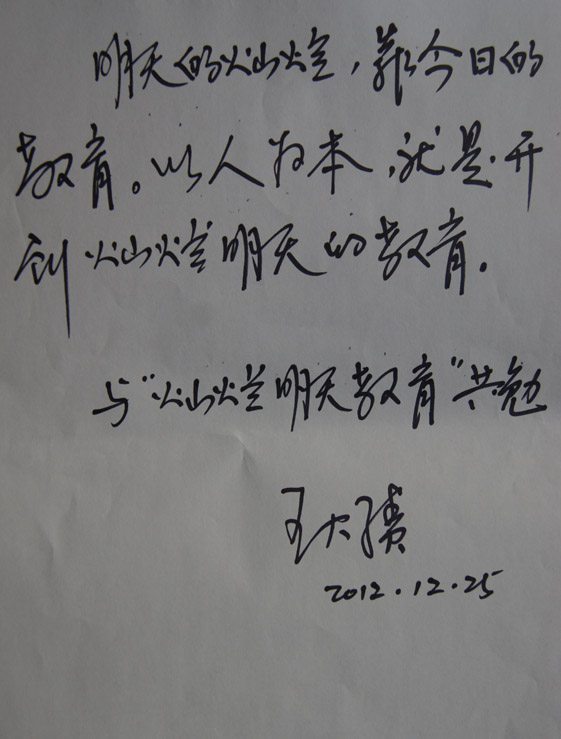 明天的灿烂，靠今日的
教育。以人为本，就是开
创灿烂明天的教育。
与“灿烂明天教育”共勉
王大绩
2012.12.25